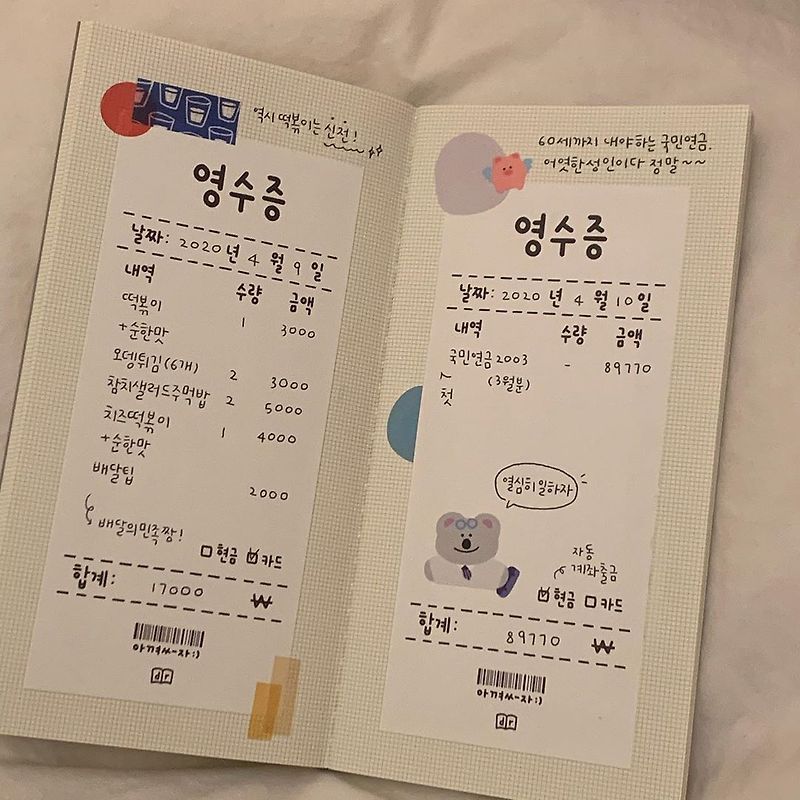 역시 떡볶이는 신전!
영수증
날짜: 2020년 4월 9일
내역 수량 금액
떡볶이 1 3000
+순한맛
오뎅튀김(6개) 2 3000
참치샐러드주먹밥 2 5000
치즈떡볶이 1 4000
+순한맛
배달팁 2000
배달의민족짱!
현금 카드
합계: 17000 ₩
아껴쓰자:)
dr
60세까지 내야하는 국민연금.
어엿한성인이다 정말~~
영수증
날짜: 2020년 4월 10일
내역 수량 금액
국민연금2003 - 89770
(3월분)
첫
열심히일하자
자동
계좌출금
현금 카드
합계: 89770 ₩
아껴쓰자:)
dr